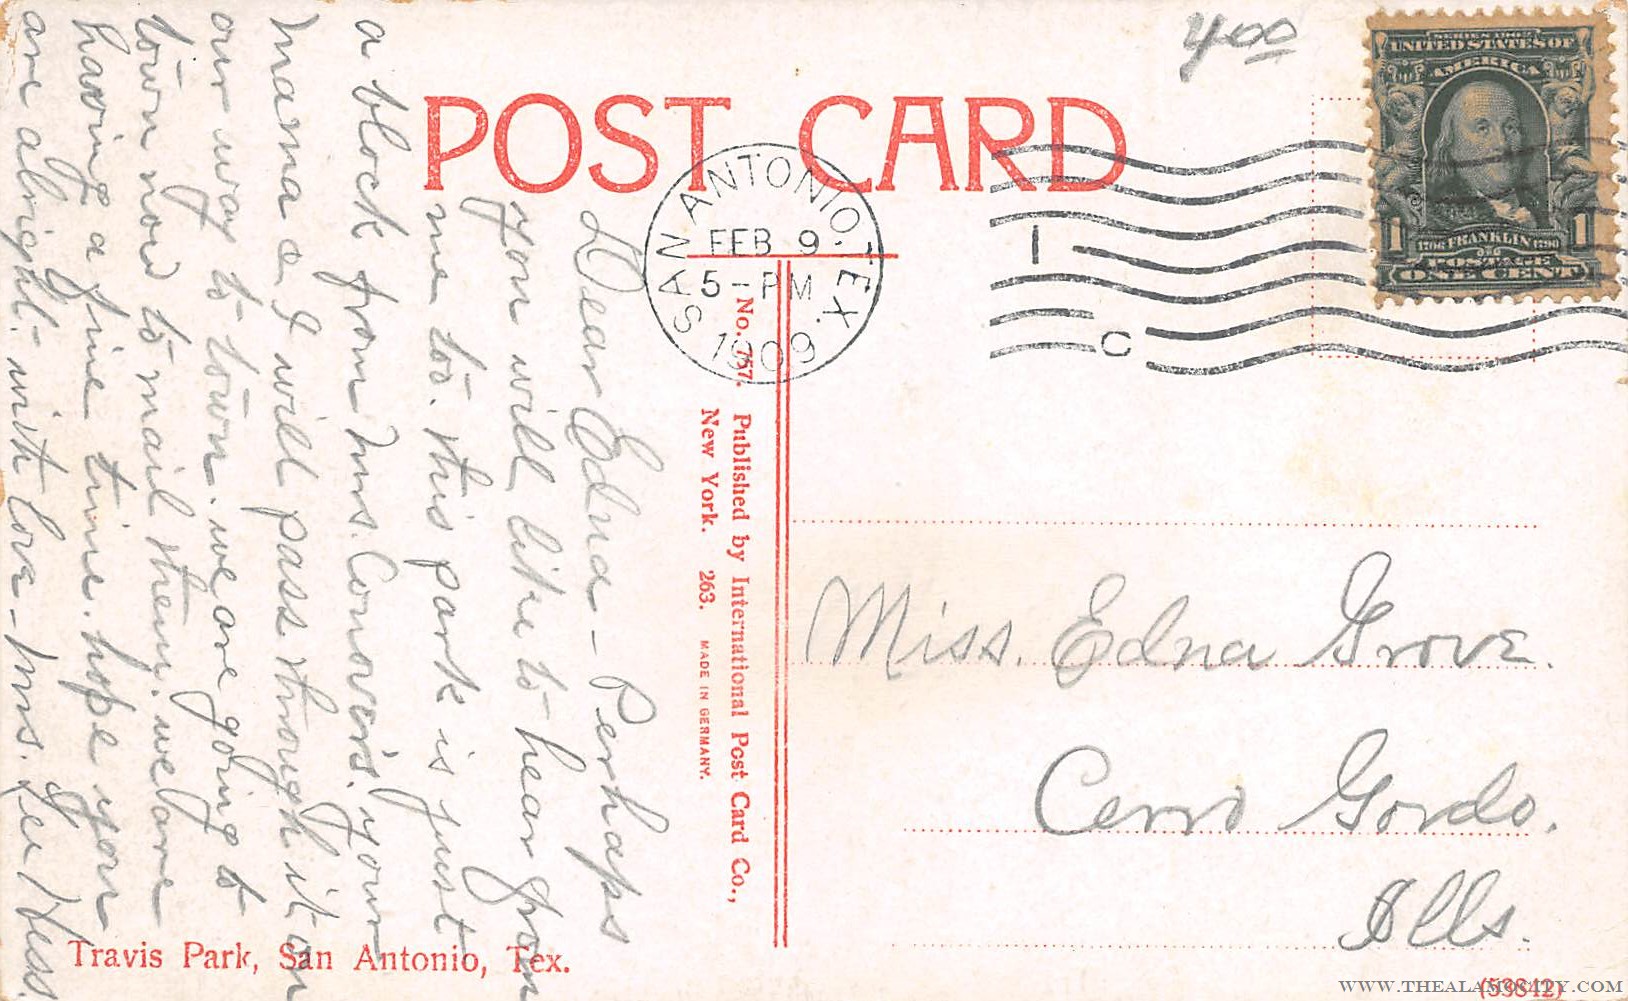 400
POST CARD
SAN ANTONIO, TEX.
FEB 9
5-PM
1909
1
C
SERIES 1902
UNITED STATES OF
AMERICA
1706 FRANKLIN 1790
1 1
POSTAGE
ONE CENT
Dear Edna - Perhaps
you will like to hear from
me too. this park is just
a block from Mrs. Conover's. your
mama & I will pass through it on
our way to town. we are going to
town now to mail them. we are
having a fine time. hope you
are alright. with love - Mrs. Lee Hess.
No. 757. Published by International Post Card Co.,
New York. 263. MADE IN GERMANY.
Miss. Edna Grove.
Cerro Gordo.
Ills.
Travis Park, San Antonio, Tex.
(53842)
WWW.THEALAMOCITY.COM